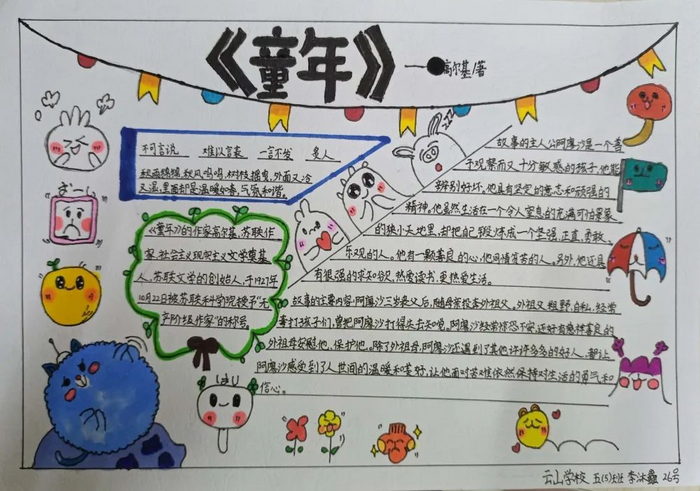 《童年》
——高尔基/著
不可言说 难以言表 一言不发
又温,里面却是温暖如春,气氛和谐。
《童年》的作家高尔基,苏联作
家,社会主义现实主义文学奠基
人,苏联文学的创始人,于1927年
10月22日被苏联科学院授予“无
产阶级作家”的称号。
故事的主人公阿廖沙是一个善
于观察而又十分敏感的孩子,他能
辩别好坏,也具有坚定的意志和顽强的
精神。他虽然生活在一个令人窒息的充满可怕景象
的狭小天地里,却把自己锻炼成一个坚强,正直,勇敢,
乐观的人。他有一颗善良的心,他同情贫苦的人。另外,他还具
有很强的求知欲,热爱读书,更热爱生活。
故事的主要内容:阿廖沙三岁丧父后,随母亲投奔外祖父。外祖父粗野,自私,经常
毒打孩子们,曾把阿廖沙打得失去知觉。阿廖沙经常惊恐不安,还好有慈祥善良的
外祖母安慰他,保护他。除了外祖母,阿廖沙还遇到了其他许许多多的好人。都让
阿廖沙感受到了人世间的温暖和美好,让他面对苦难依然保持对生活的勇气和
信心。
云山学校 五(5)班 李沐 26号